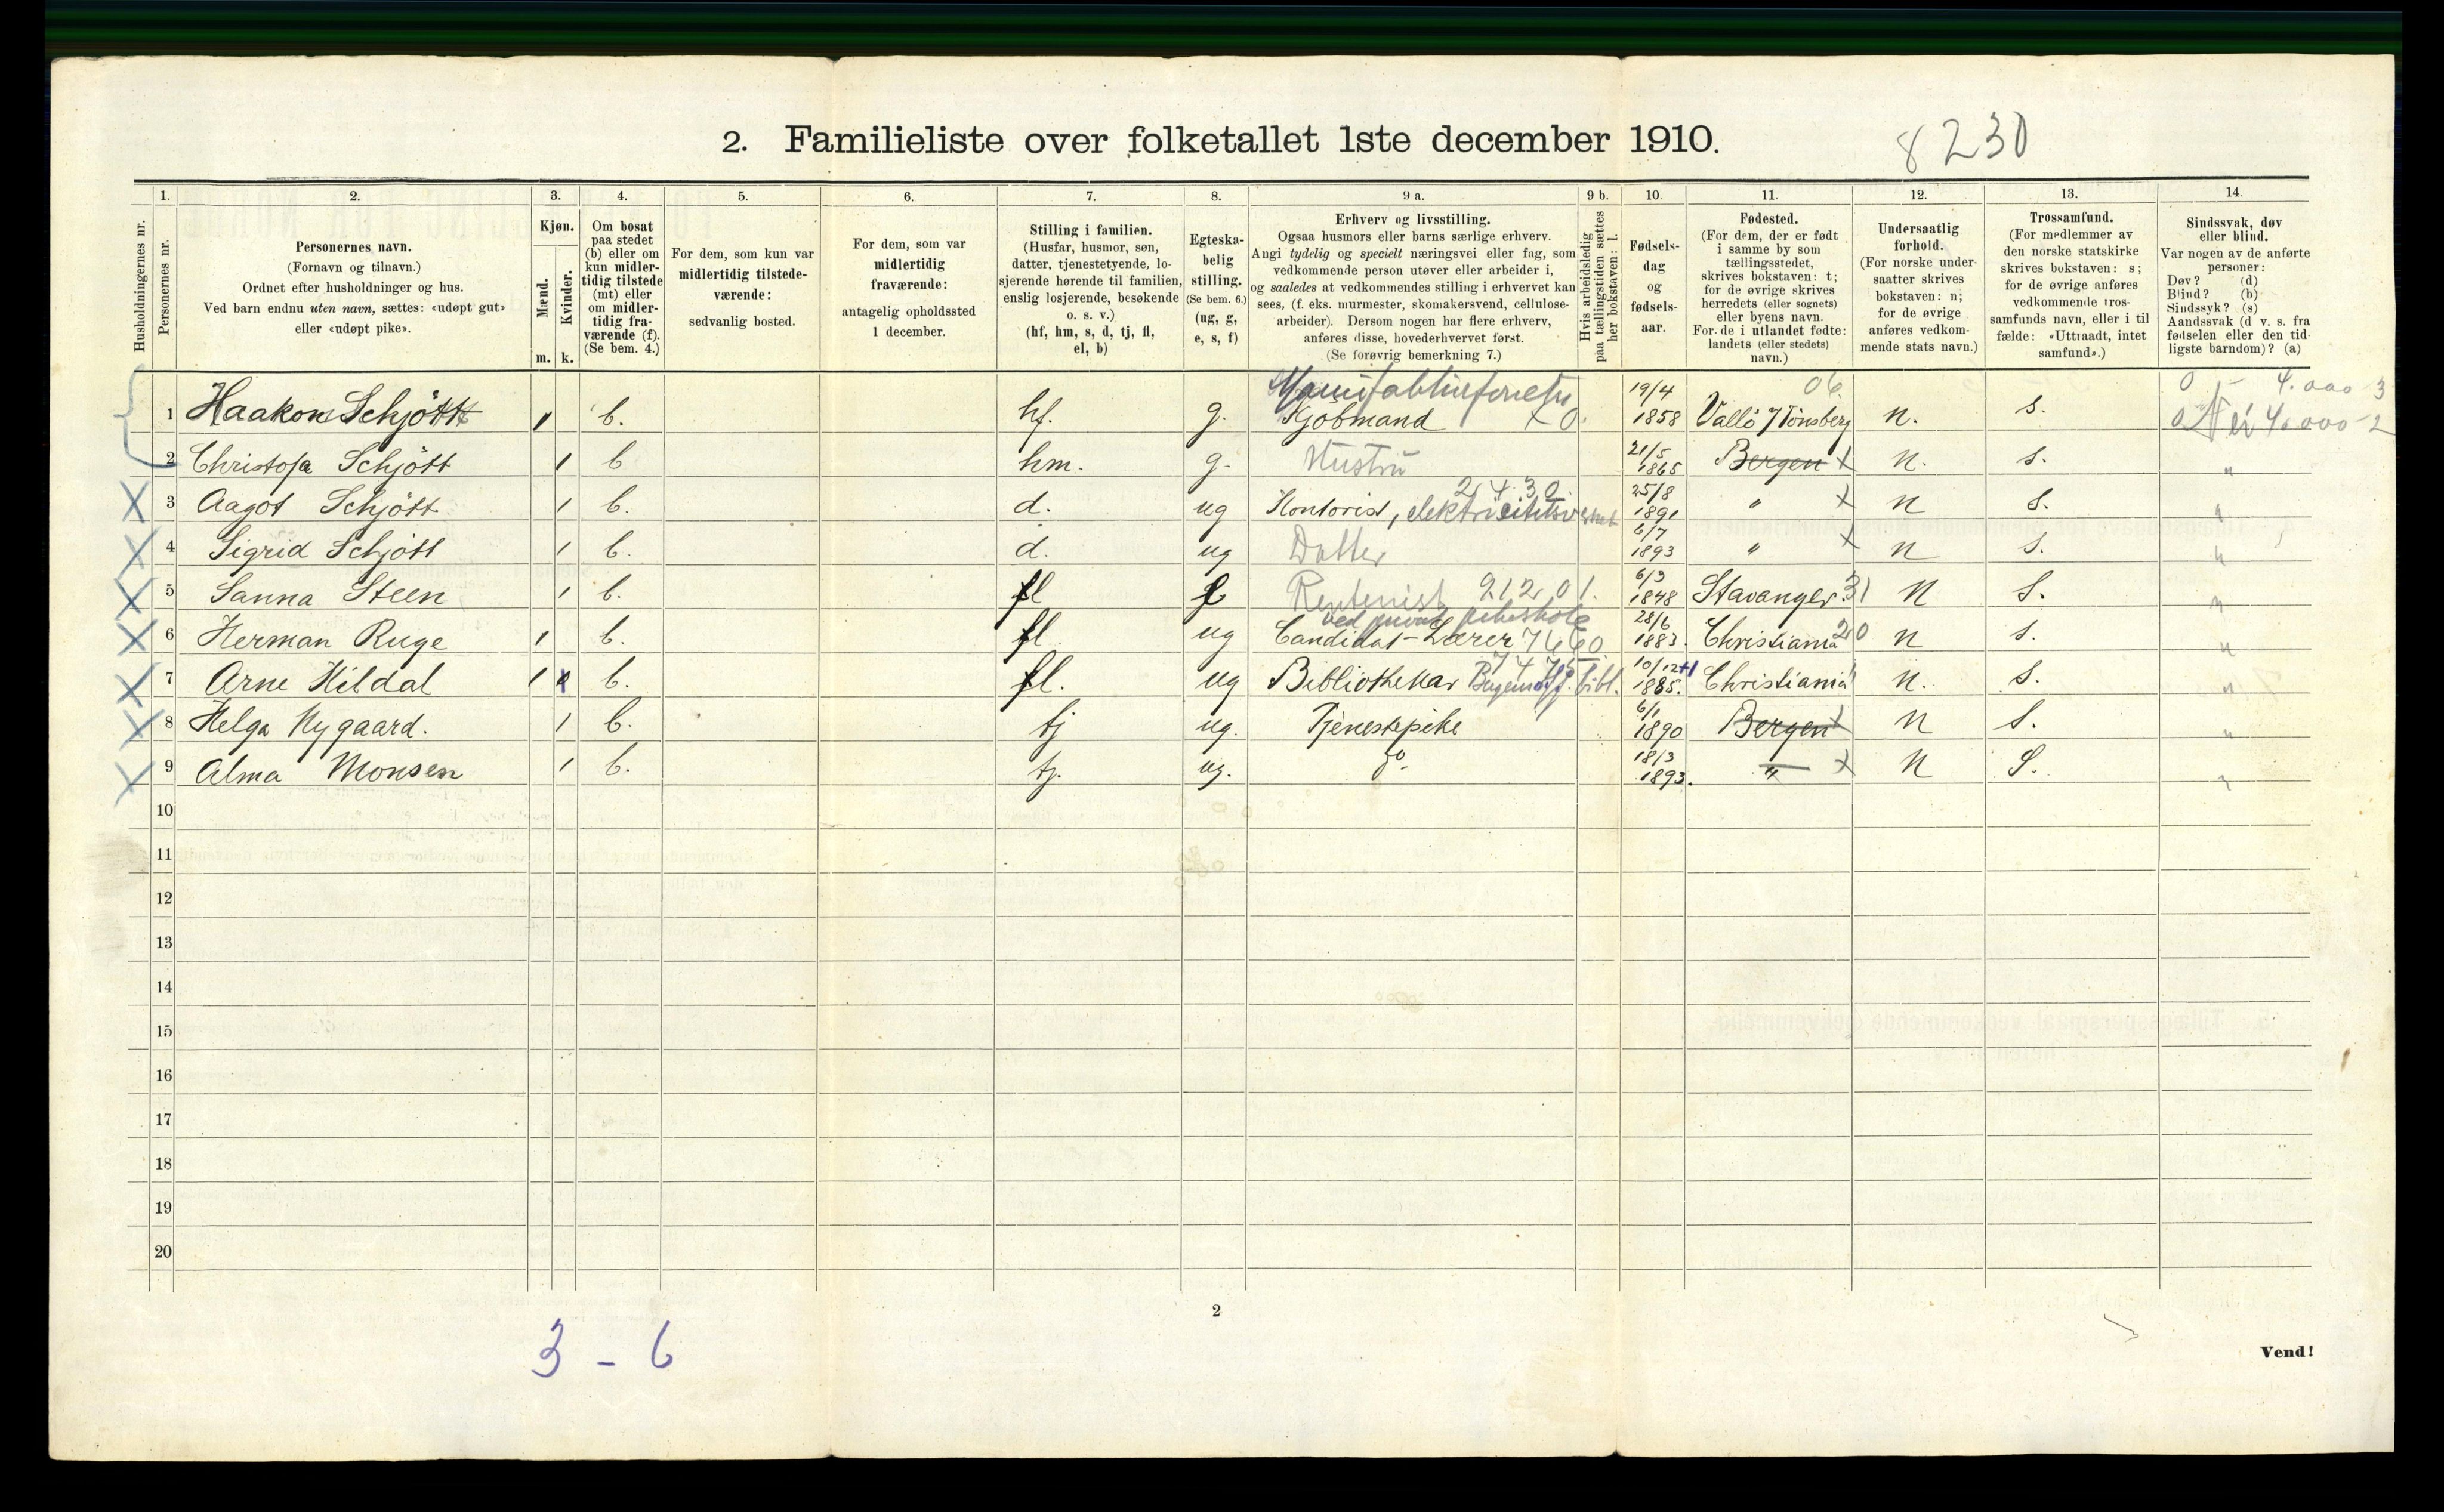 2. Familieliste over folketallet 1ste december 1910.
8230
1. 2. 3. 4. 5. 6. 7. 8. 9 a. 9 b. 10. 11. 12. 13. 14.
Husholdningernes nr.
Personernes nr.
Personernes navn.
(Fornavn og tilnavn.)
Ordnet efter husholdninger og hus.
Ved barn endnu uten navn, sættes: «udøpt gut»
eller «udøpt pike».
Kjøn.
Mænd.
Kvinder.
m. k.
Om bosat
paa stedet
(b) eller om
kun midler-
tidig tilstede
(mt) eller
om midler-
tidig fra-
værende (f).
(Se bem. 4.)
For dem, som kun var
midlertidig tilstede-
værende:
sedvanlig bosted.
For dem, som var
midlertidig
fraværende:
antagelig opholdssted
1 december.
Stilling i familien.
(Husfar, husmor, søn,
datter, tjenestetyende, lo-
sjerende hørende til familien,
enslig losjerende, besøkende
o. s. v.)
(hf, hm, s, d, tj, fl,
el, b)
Egteska-
belig
stilling.
(Se bem. 6.)
(ug, g,
e, s, f)
Erhverv og livsstilling.
Ogsaa husmors eller barns særlige erhverv.
Angi tydelig og specielt næringsvei eller fag, som
vedkommende person utøver eller arbeider i,
og saaledes at vedkommendes stilling i erhvervet kan
sees, (f. eks. murmester, skomakersvend, cellulose-
arbeider). Dersom nogen har flere erhverv,
anføres disse, hovederhvervet først.
(Se forøvrig bemerkning 7.)
Hvis arbeidsledig
paa tællingstiden sættes
her bokstaven: l.
Fødsels-
dag
og
fødsels-
aar.
Fødested.
(For dem, der er født
i samme by som
tællingsstedet,
skrives bokstaven: t;
for de øvrige skrives
herredets (eller sognets)
eller byens navn.
For de i utlandet fødte:
landets (eller stedets)
navn.)
Undersaatlig
forhold.
(For norske under-
saatter skrives
bokstaven: n;
for de øvrige
anføres vedkom-
mende stats navn.)
Trossamfund.
(For medlemmer av
den norske statskirke
skrives bokstaven: s;
for de øvrige anføres
vedkommende tros-
samfunds navn, eller i til-
fælde: «Uttraadt, intet
samfund».)
Sindssvak, døv
eller blind.
Var nogen av de anførte
personer:
Døv? (d)
Blind? (b)
Sindssyk? (s)
Aandssvak (d. v. s. fra
fødselen eller den tid-
ligste barndom)? (a)
06 0 - 4.000 - 3
1 Haakon Schjött 1 b. hf. g. Kjöbmand x 0. 19/4 1858 Vallö v/ Tönsberg n. s. 4.000 - 2
2 Christofa Schjött 1 b hm. g. Hustru 21/5 1865 Bergen x n. s. "
2430
3 Aagot Schjött 1 b. d. ug Kontorist, elektricitetsverket 25/8 1891 " x n s. "
4 Sigrid Schjött 1 b. d. ug Datter 6/7 1893 " x n s. "
5 Sanna Steen 1 b. fl Rentenist 91201. 6/3 1848 Stavanger 31 n s. "
ved privat pikeskole
6 Herman Ruge 1 b. fl ug Candidat-Lærer 7460. 28/6 1883. Christiania 20 n s. "
7475
7 Arne Kildal 1 b. fl. ug Bibliothekar Bergens off. bibl. 10/12 1885. Christiania " n. s. "
8 Helga Nygaard. 1 b. tj ug. Tjenestepike 6/1 1890 Bergen x n s. "
9 Alma Monsen 1 b. tj. ug. do 18/3 1893. " x n s. "
10
11
12
13
14
15
16
17
18
19
20
2
3 - 6
Vend!